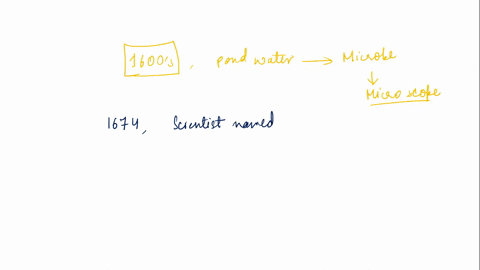 1600's, pond water → Microbe
↓
Microscope
1674, Scientist named